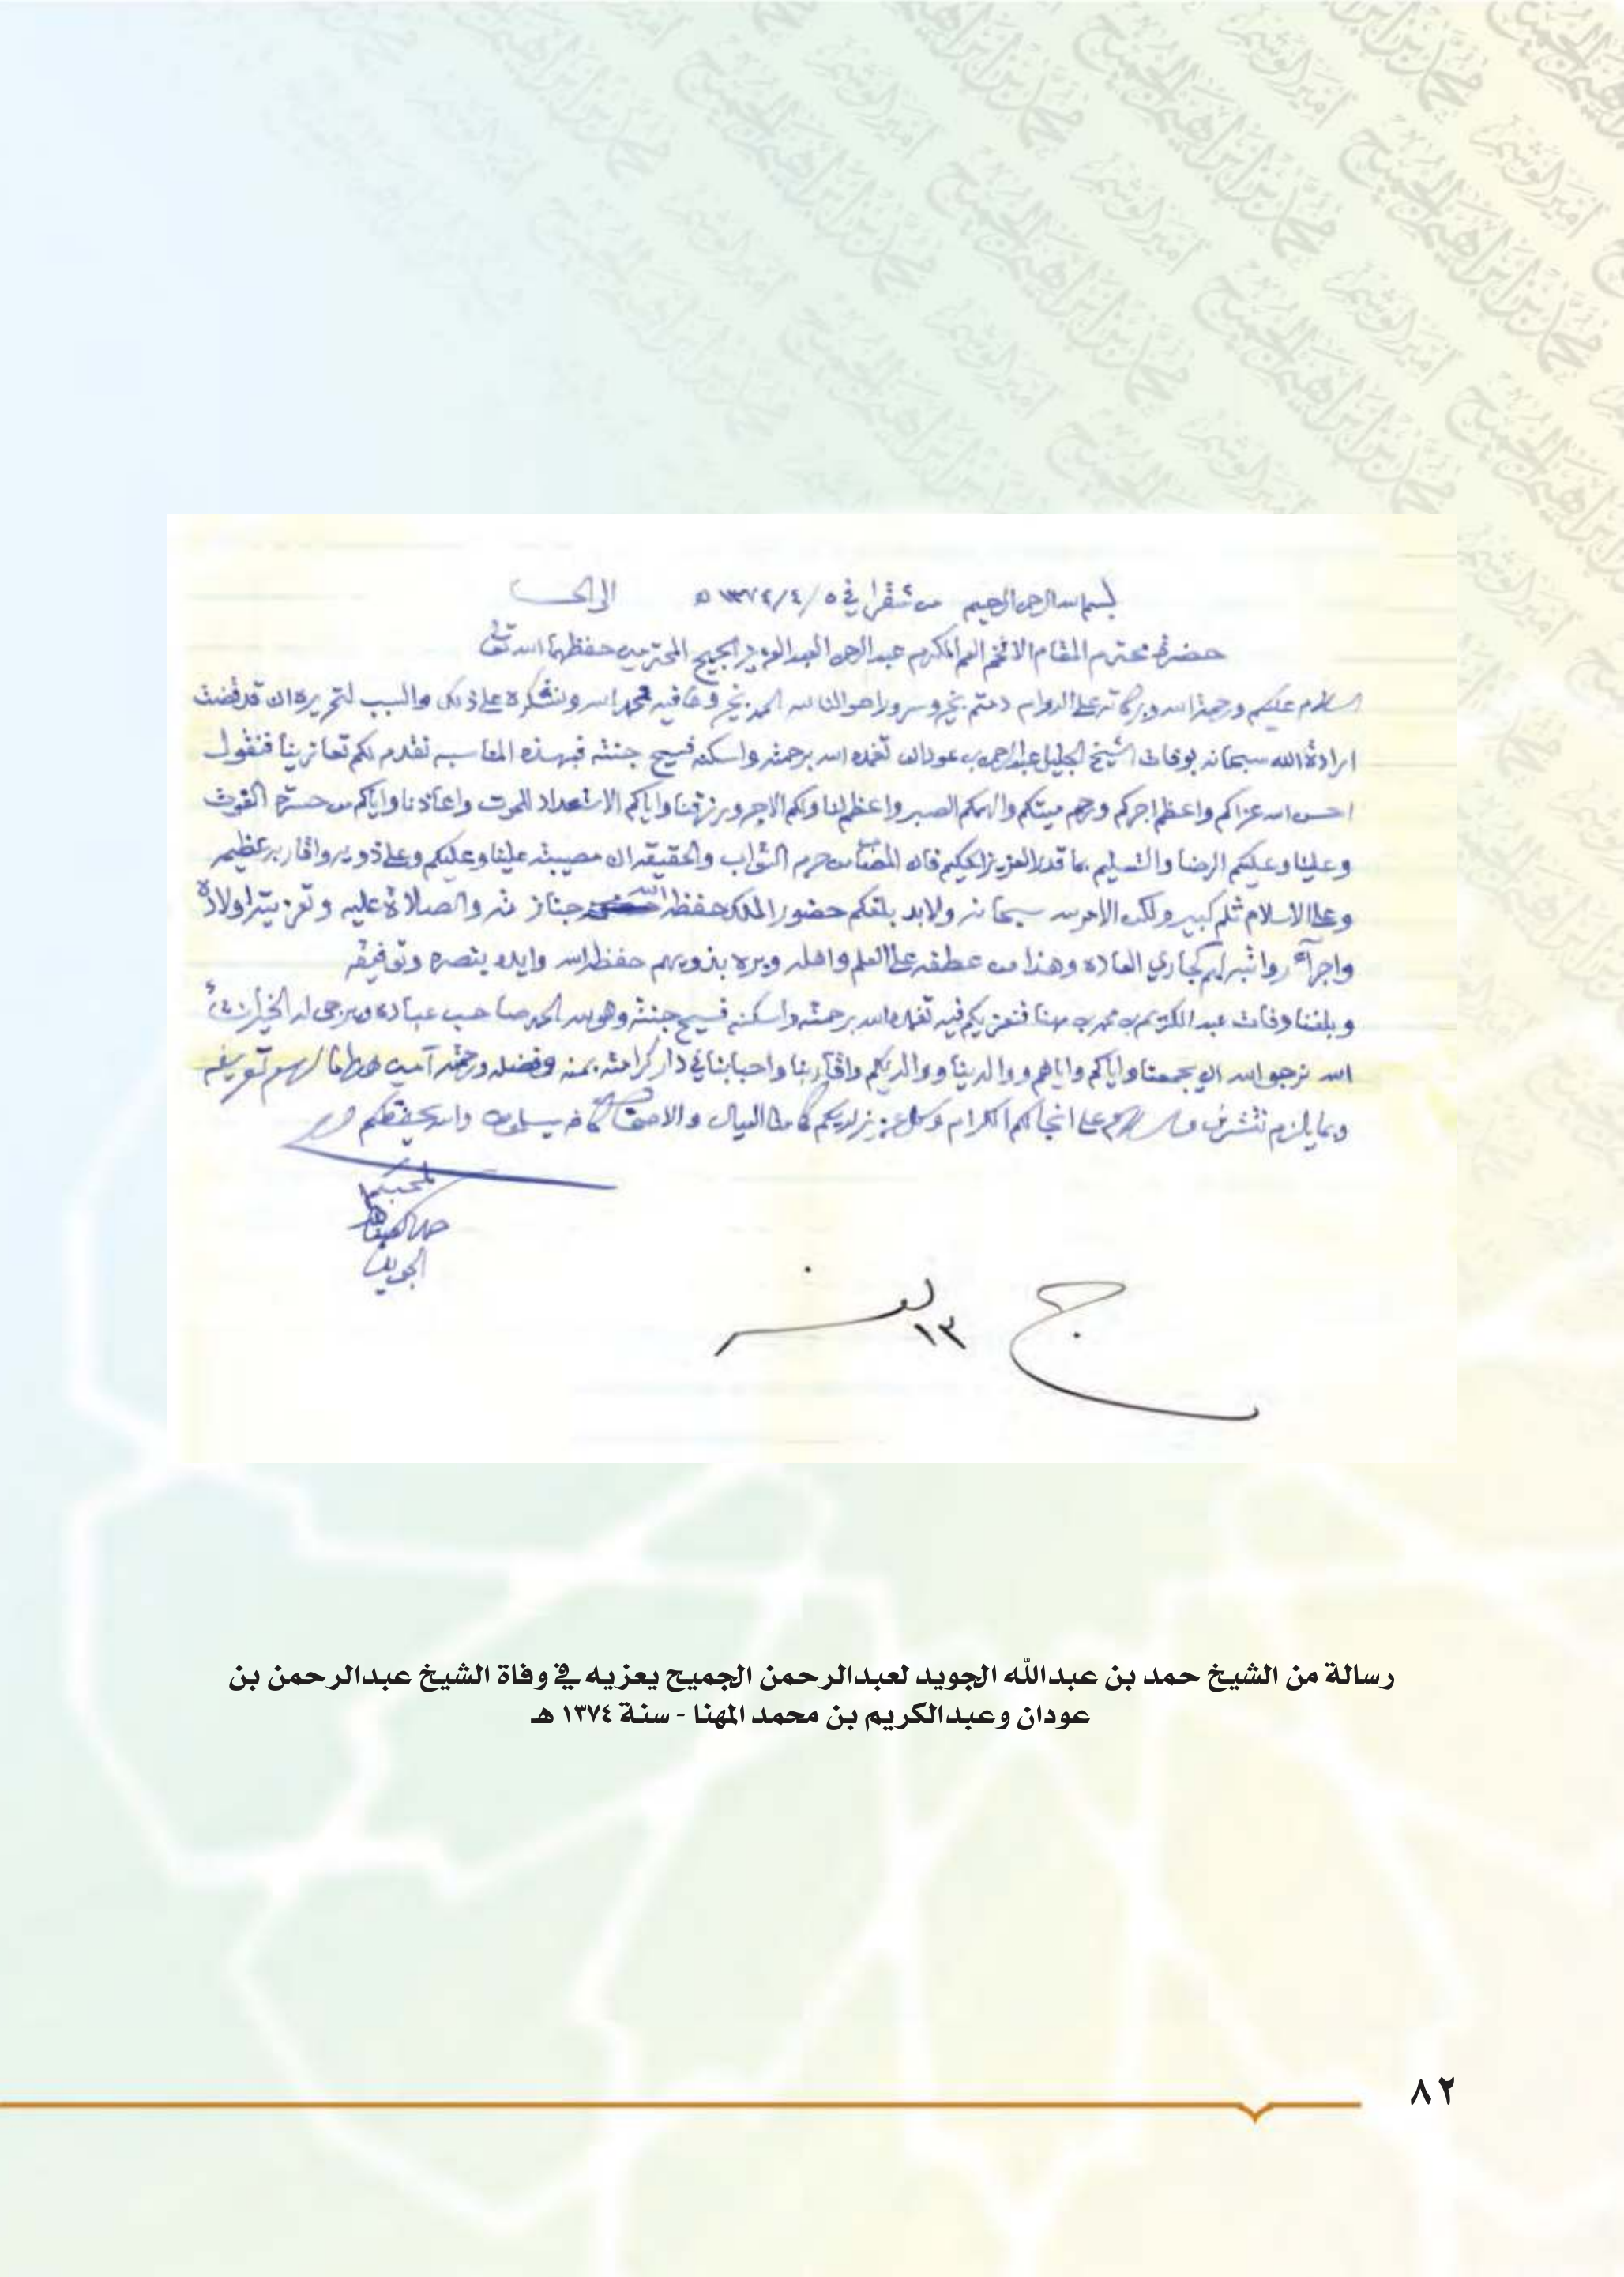 بسم الله الرحمن الرحيم من شقرا في ٥/٤/١٣٧٤ه الى الحسا
حضرة محترم المقام الافخم العم المكرم عبدالرحمن العبدالعزيز الجميح المحترمين حفظهما الله تعالى
السلام عليكم ورحمة الله وبركاته على الدوام دمتم بخير وسرور احوالنا لله الحمد بخير وعافيه نحمد الله ونشكره على ذلك والسبب لتحريره ان قد قضت
ارادة الله سبحانه بوفات الشيخ الجليل عبدالرحمن بن عودان تغمده الله برحمته واسكنه فسيح جنته فبهذه المناسبه نقدم لكم تعازينا فنقول
احسن الله عزاكم واعظم اجركم ورحم ميتكم والهمكم الصبر واعظم لنا ولكم الاجر ورزقنا واياكم الاستعداد للموت واعاذنا واياكم من حسرة الفوت
وعلينا وعليكم الرضا والتسليم بما قدر العزيز الحكيم فان المصاب من حرم الثواب والحقيقه ان مصيبته علينا وعليكم وعلى ذويه واقاربه عظيمه
وعلى الاسلام ثلم كبير ولكن الامر لله سبحانه ولابد بلغكم حضور الملك حفظه الله جنازته والصلاة عليه وتعزيته اولاده
واجراء رواتبه لهم كجاري العاده وهذا من عطفه على العلم واهله وبره بذويهم حفظه الله وايده بنصره وتوفيقه
وبلغنا وفات عبد الكريم بن محمد بن مهنا فنعزيكم فيه تغمده الله برحمته واسكنه فسيح جنته وهو لله الحمد صاحب عباده ويرجى له الخير ان شاء
الله نرجو الله ان يجمعنا واياكم واياهم ووالدينا ووالديكم واقاربنا واحبابنا في دار كرامته بمنه وفضله ورحمته آمين هذا ما لزم تعريفه
وما يلزم نتشرف والسلام على انجالكم الكرام وكل عزيز لديكم كما منا العيال والاصحاب كافه يسلمون والله يحفظكم
محبكم
حمد العبدالله
الجويد
ج
١٣
رسالة من الشيخ حمد بن عبدالله الجويد لعبدالرحمن الجميح يعزيه في وفاة الشيخ عبدالرحمن بن
عودان وعبدالكريم بن محمد المهنا - سنة ١٣٧٤ هـ
٨٢